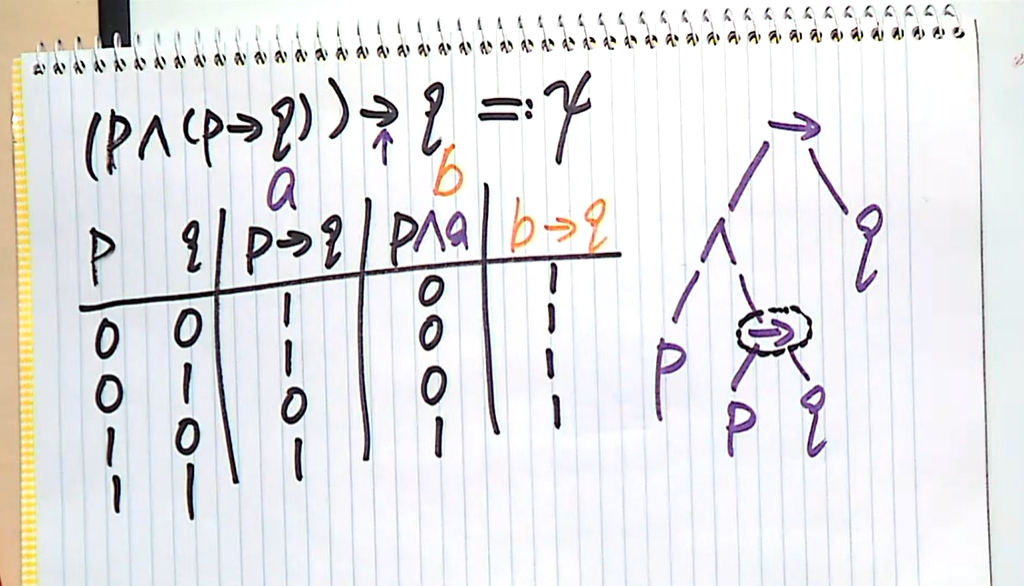 (p∧(p→q))→q =: ψ
↑
a b
p q p→q p∧a b→q
0 0 1 0 1
0 1 1 0 1
1 0 0 0 1
1 1 1 1 1
→
∧ q
p →
p q